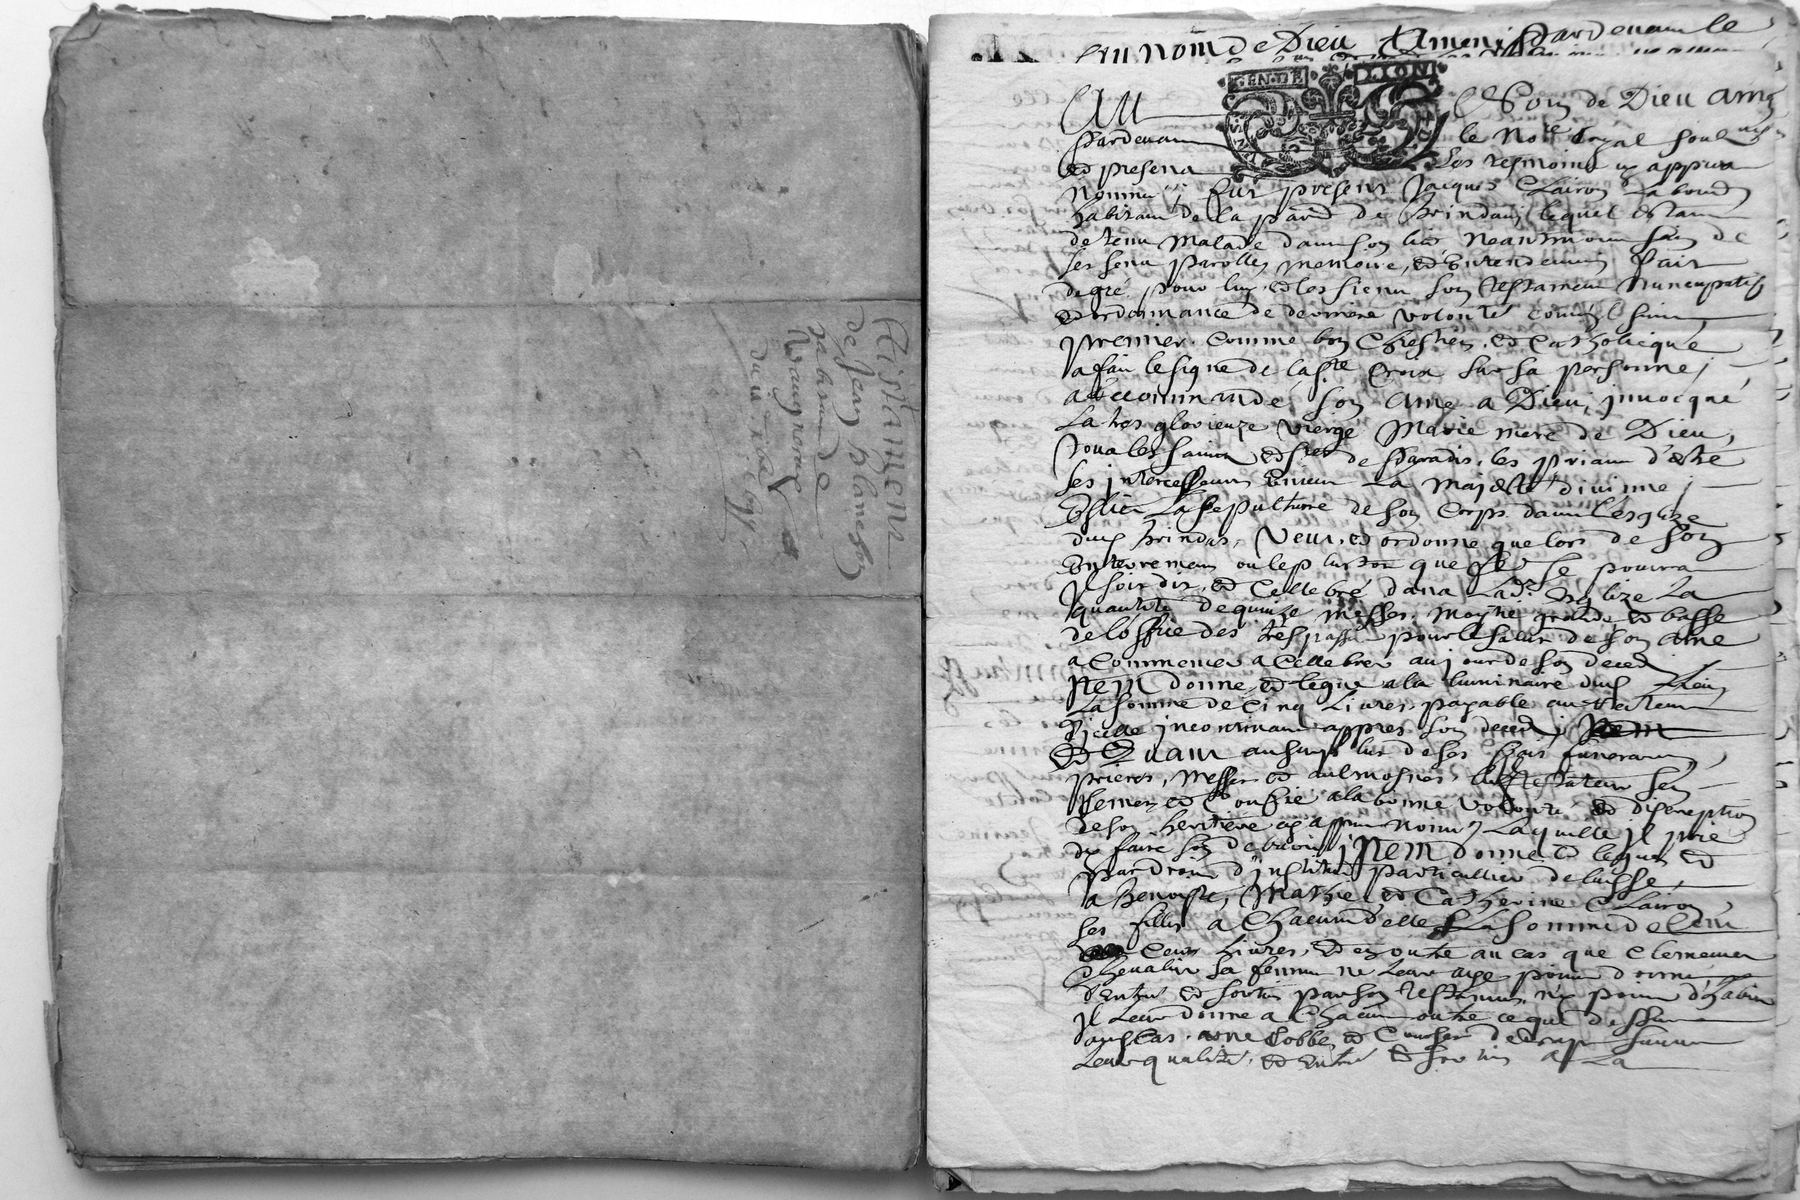 Testament
de Jean planchon
habitant de
Vaugneray
du
Au nom de Dieu Amen pardevant le
GEN. DE LYON
Au Nom de Dieu amen
Pardevant le Not.re royal soub.né
et presens les tesmoins cy appres
Nommes, fut present Jacques Clairon Laboureur
habitant de la parr. de brindas, lequel estant
detenu Malade dans son lict, Neantmoins sain de
ses sens parolle, memoire, et Entendement fait
de gré pour luy et les siens son testament Nuncupatif
et ordonnance de derniere volonté comme sensuit
premier comme bon Chrestien et Catholicque
a fait le signe de la s.te Croix sur sa personne,
a Recommandé son ame a Dieu, jnvocqué
La tres glorieuze vierge Marie mere de Dieu,
Tous les saincts et s.tes de Paradis, les priant d'estre
ses jntercesseurs Envers La Majesté divinne,
Eslict La sepulture de son Corps dans l'esglize
dud. brindas, Veut et ordonne que lors de son
Enterrement ou le plustost que fe se pourra
Il soit dit et Cellebré dans Lad. Esglize La
quantité de quinze messes, moytié grande et basse
de loffice des trespassés pour le salut de son ame
a Commencer a Cellebrer au jour de son deced
Item donne et legue a la luminaire dud. Lieu
La somme de Cinq Livres payable aux
D'jcelle jncontinant appres son deced, Item
Et Quant au surplus de ses frais funeraux,
prieres, Messes et aulmosnes led. Testateur s'en
Remet et Confie a la bonne volonté et discreption
de son heritiere cy appres nommée Laquelle jl prie
dy faire son debvoir, Item donne et legue et
par droit d'jnstitution particulliere delaisse
a Benoiste, Mathie et Catherine Clairon
ses filles a Chacune d'elles La somme de Cent
Cent Livres, et en outre au cas que Clemence
Chevalier sa femme ne Leur aye point donné
d'Entrer et sortir par son testament, ny point d'habit
jl Leur donne a Chacune outre ce que dessus
aud. Cas, une Robbe et Cousser de drap suivant
Leur quallité, et Entrer et sortir a La